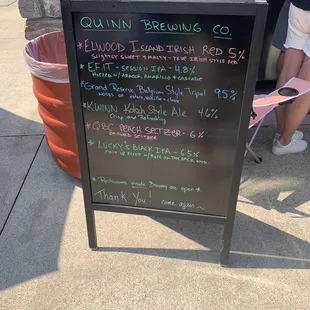 QUINN BREWING CO.
* ELWOOD ISLAND IRISH RED 5%
SLIGHTLY SWEET & MALTY - TRUE IRISH STYLE RED
* EFIT - SESSION IPA - 4.8%
HOPPED W/ AZACCA, AMARILLO & CASCADE
* Grand Reserve Belgian Style Tripel 9.5%
NOTES OF
* KWINN Kölsch Style Ale 4.6%
Crisp and Refreshing
* QBC PEACH SELTZER - 6%
SELTZER
* LUCKY'S BLACK IPA - 6.5%
ON THE BACK END
* Restrooms inside Brewery are open *
Thank you! Come again